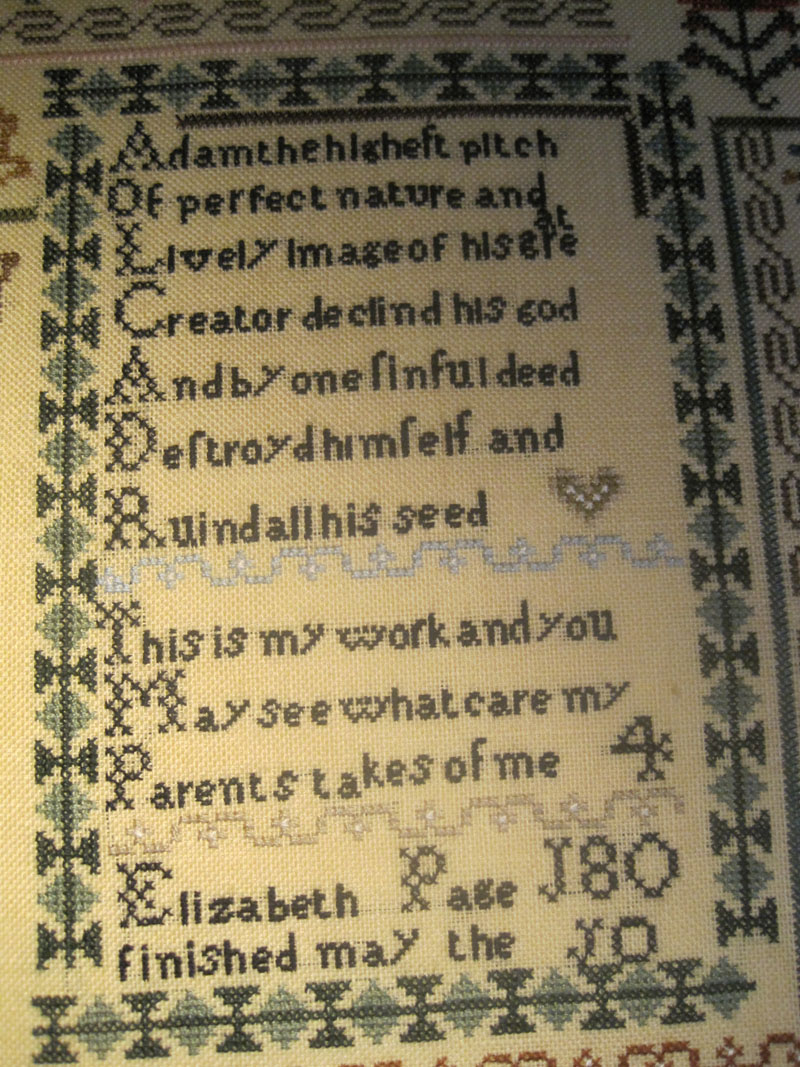 Adam the higheſt pitch
Of perfect nature and
Lively image of his gre at
Creator declind his god
And by one ſinful deed
Deſtroyd himſelf and
Ruind all his seed
This is my work and you
May see what care my
Parents takes of me 4
Elizabeth Page J80
finished may the J0